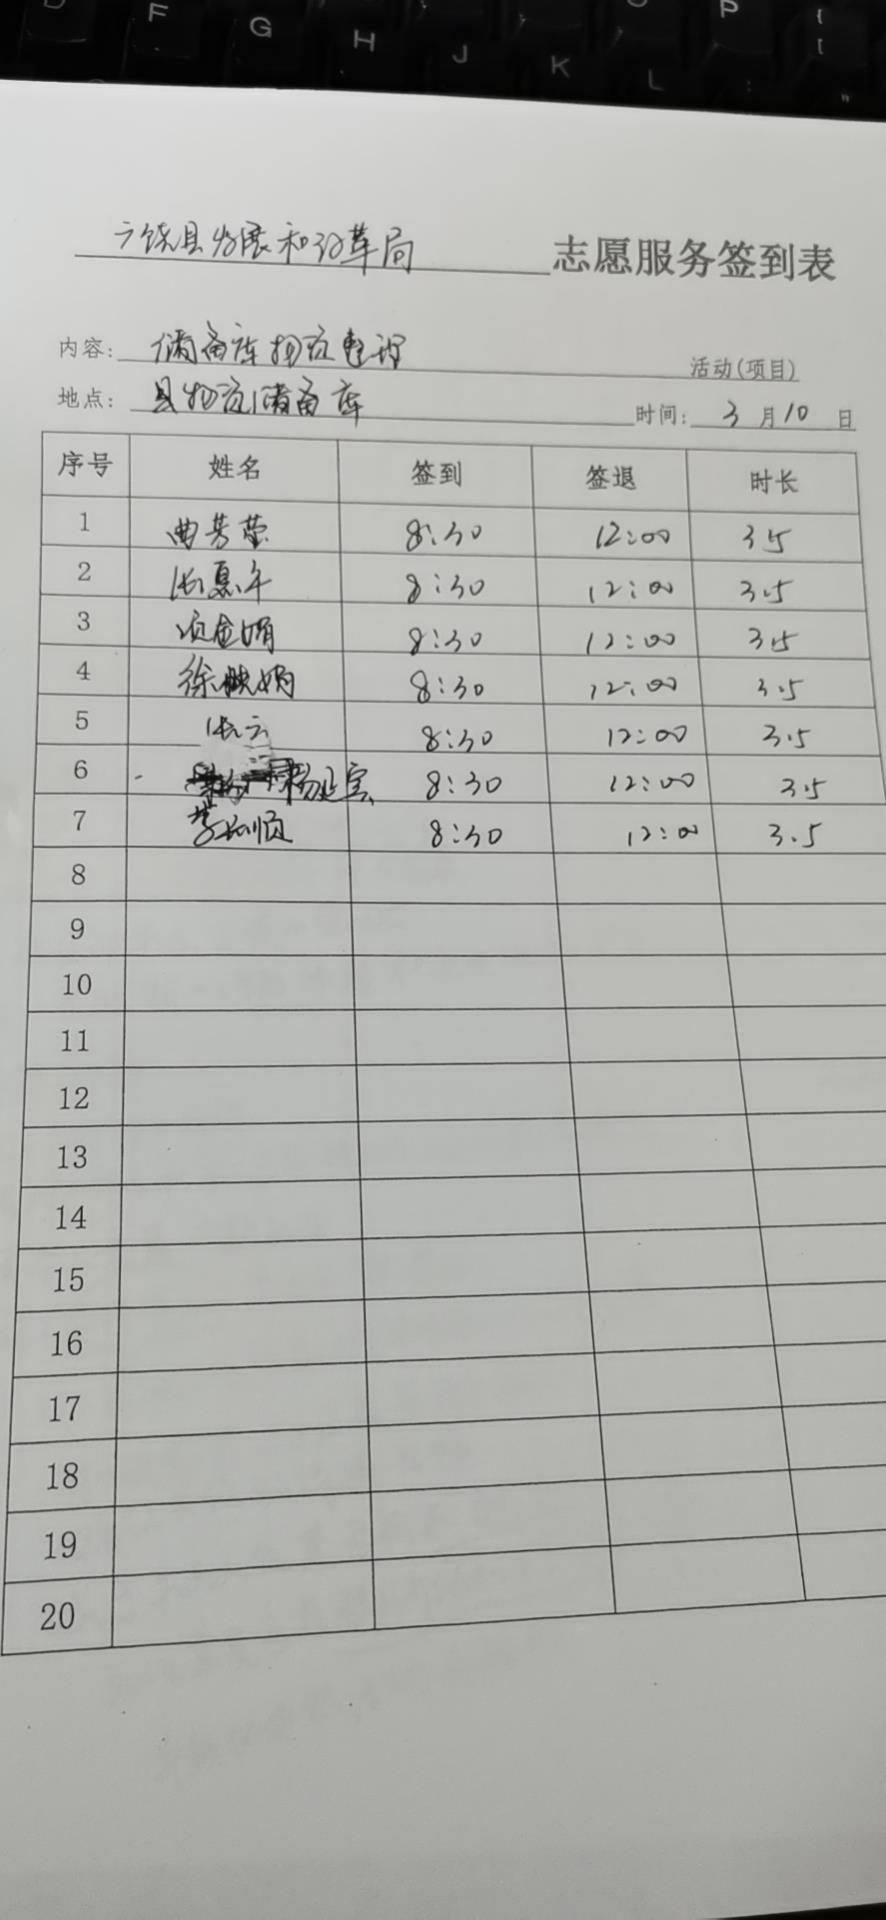 广饶县发展和改革局 志愿服务签到表
内容: 储备库物资整理 活动(项目)
地点: 县物资储备库 时间: 3月10日
序号 姓名 签到 签退 时长
1 曲芳莹 8:30 12:00 3.5
2 张夏午 8:30 12:00 3.5
3 项金娟 8:30 12:00 3.5
4 徐娟 8:30 12:00 3.5
5 张云 8:30 12:00 3.5
6 杨延宝 8:30 12:00 3.5
7 顺 8:30 12:00 3.5
8
9
10
11
12
13
14
15
16
17
18
19
20